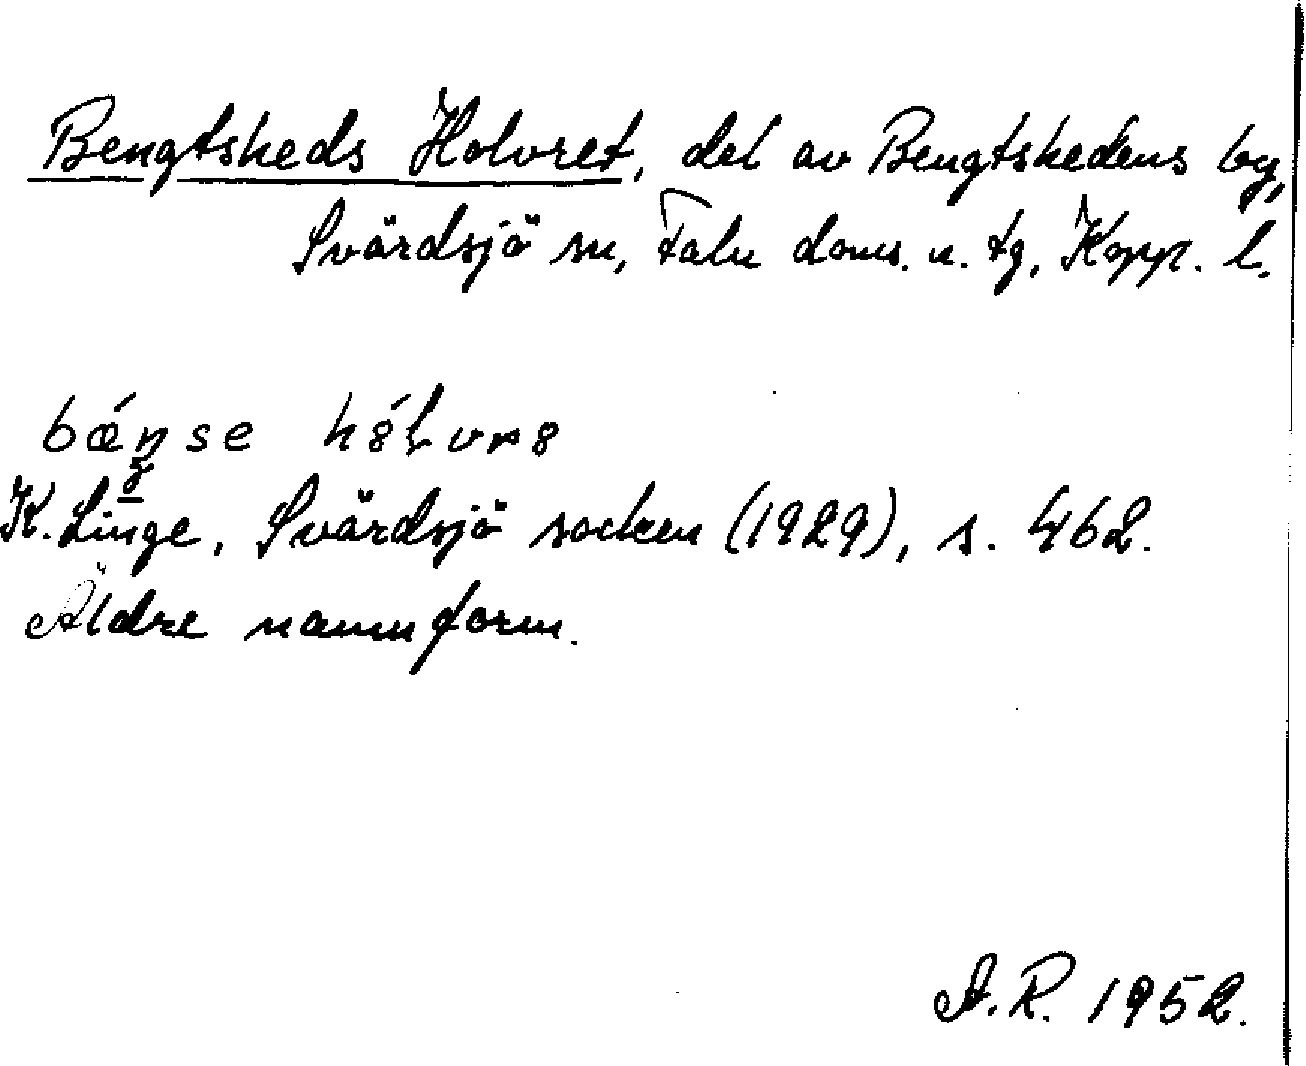 Bengtsheds Holvret, del av Bengtshedens by,
Svärdsjö sn, Falu doms. o. tg, Kopp. l.
bǽŋse
K. Linge, Svärdsjö socken (1929), s. 462.
Äldre namnform.
A.R. 1952.